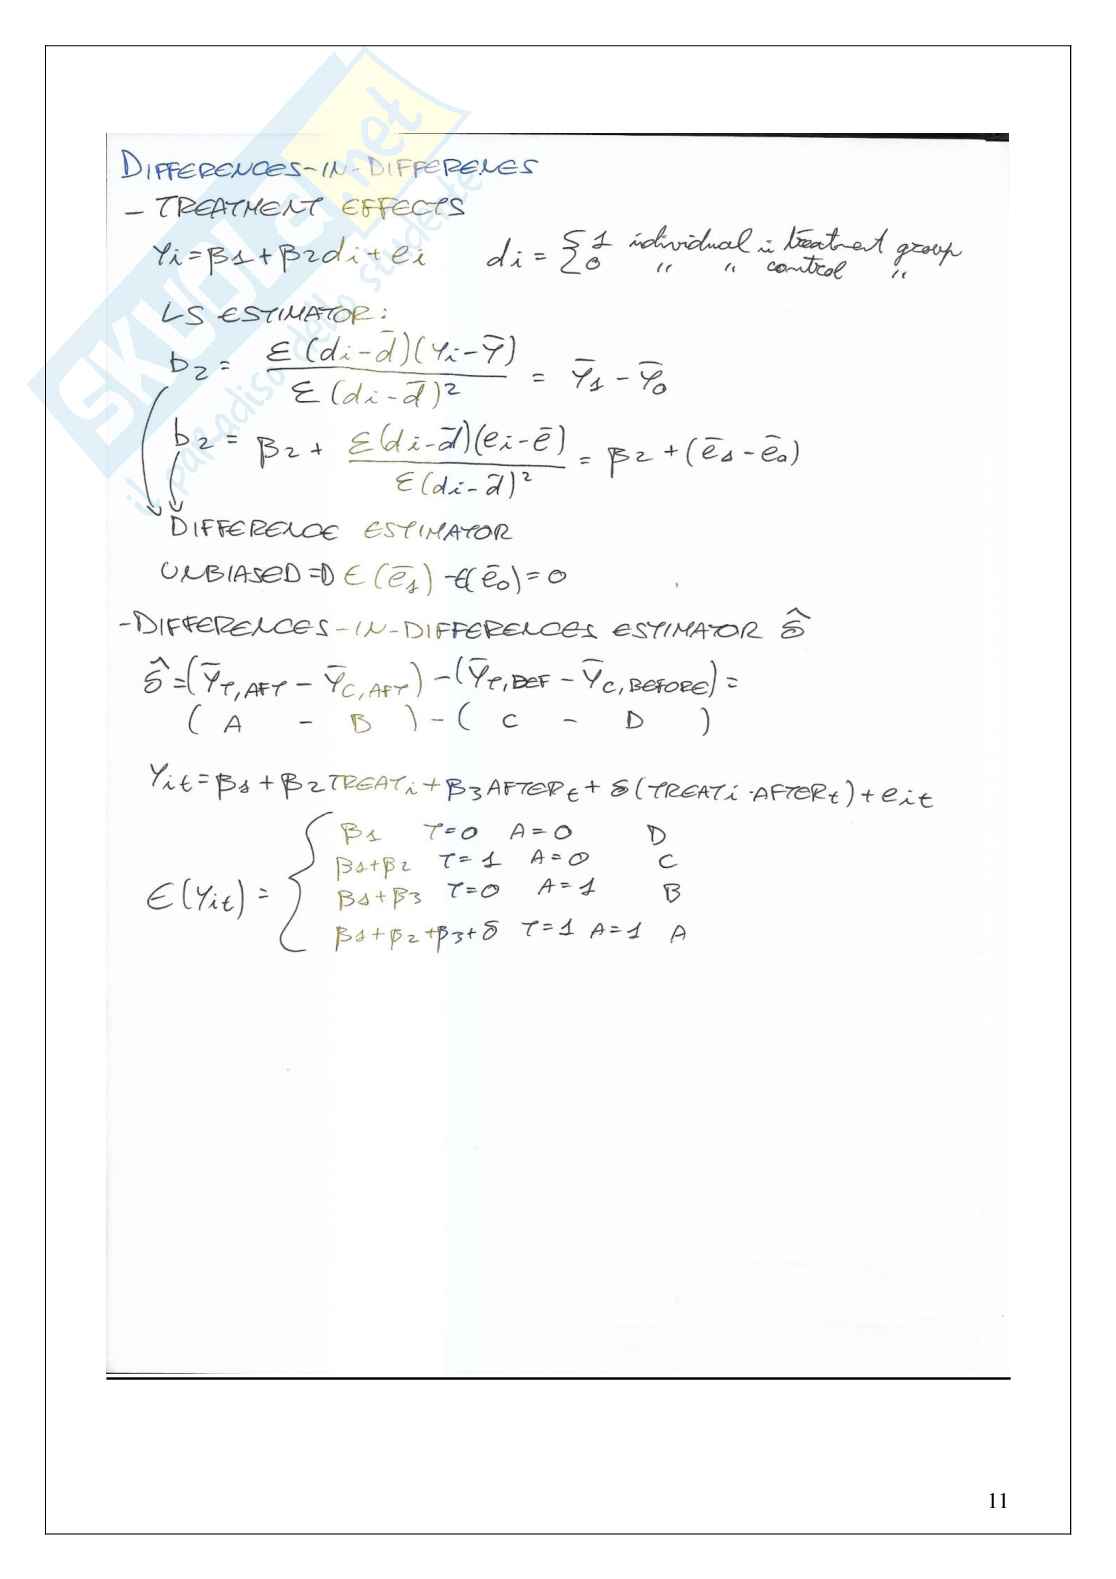 DIFFERENCES-IN-DIFFERENES
- TREATMENT EFFECTS
Yi = β1 + β2di + ei   di = { 1 individual i treatment group
0 " " control "
LS ESTIMATOR:
b2 = Σ(di - d̄)(Yi - Ȳ) / Σ(di - d̄)² = Ȳ1 - Ȳ0
b2 = β2 + Σ(di - d̄)(ei - ē) / Σ(di - d̄)² = β2 + (ē1 - ē0)
DIFFERENCE ESTIMATOR
UNBIASED => E(ē1) - E(ē0) = 0
- DIFFERENCES-IN-DIFFERENCES ESTIMATOR δ̂
δ̂ = (ȲT,AFT - ȲC,AFT) - (ȲT,BEF - ȲC,BEFORE) =
( A - B ) - ( C - D )
Yit = β1 + β2 TREATi + β3 AFTERt + δ(TREATi · AFTERt) + eit
E(Yit) = { β1 T=0 A=0 D
β1+β2 T=1 A=0 C
β1+β3 T=0 A=1 B
β1+β2+β3+δ T=1 A=1 A
SKUOLA.net
il paradiso dello studente
11